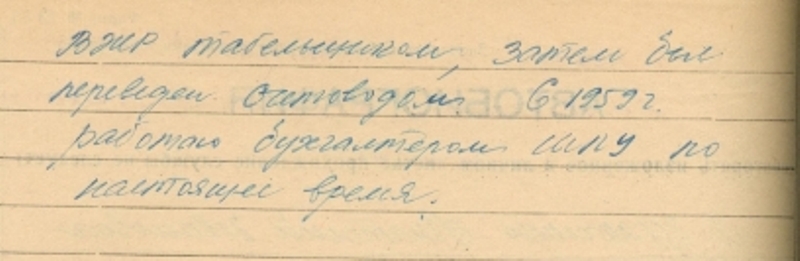 ВЖР табельщиком, затем был
переведен счетоводом. С 1959 г.
работаю бухгалтером ШПУ по
настоящее время.